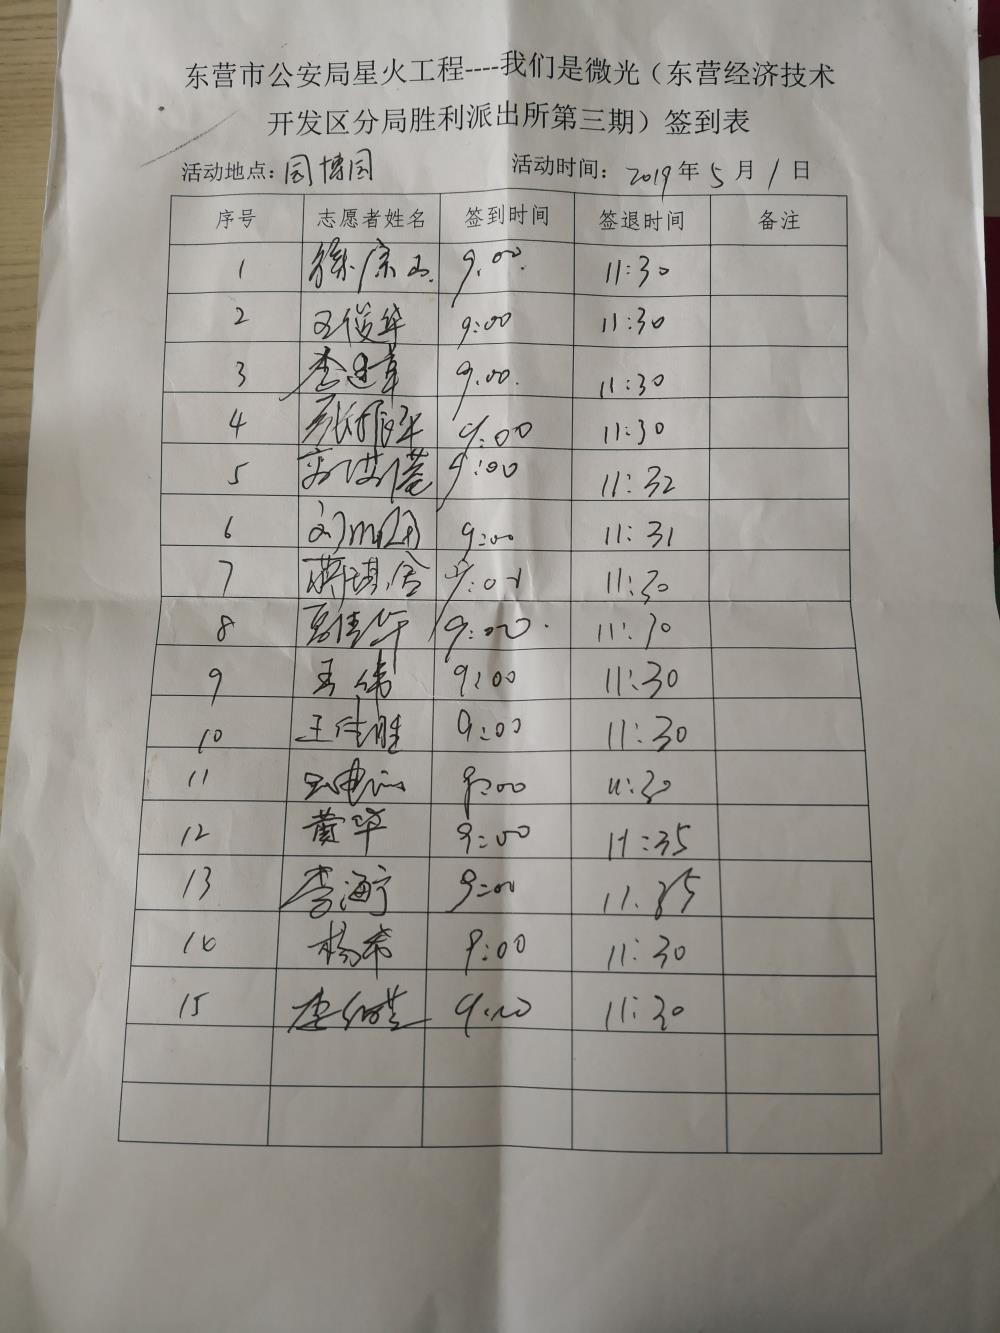 东营市公安局星火工程----我们是微光（东营经济技术
开发区分局胜利派出所第三期）签到表
活动地点：园博园 活动时间：2019年5月1日
序号 志愿者姓名 签到时间 签退时间 备注
1 9:00 11:30
2 王俊华 9:00 11:30
3 李建章 9:00 11:30
4 9:00 11:30
5 9:00 11:32
6 9:00 11:31
7 11:30
8 9:00 11:30
9 王伟 9:00 11:30
10 王佳胜 9:00 11:30
11 9:00 11:30
12 黄华 9:00 11:35
13 李海宁 9:00 11:35
14 杨希 9:00 11:30
15 11:30